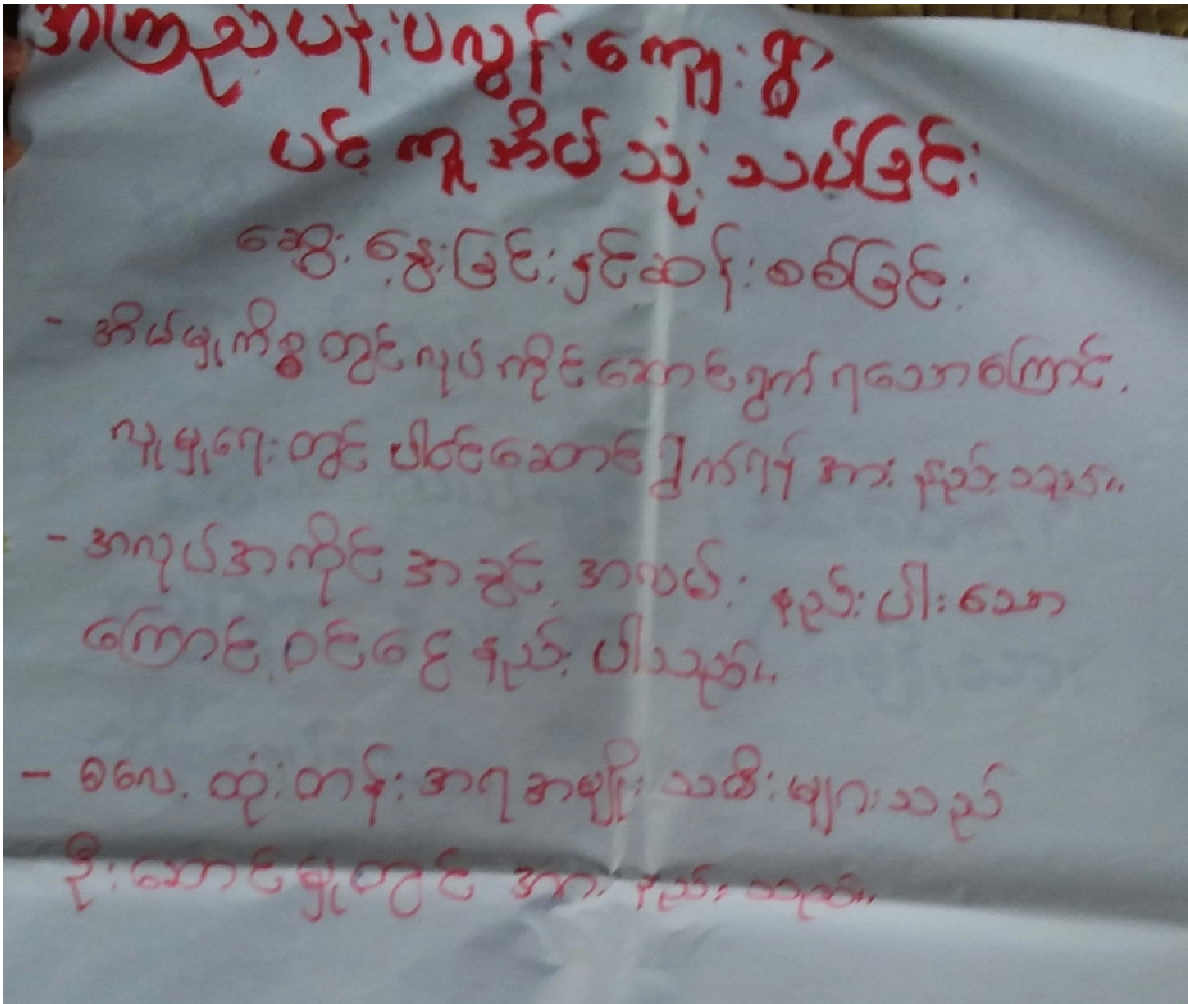 အကြည်ပန်းပလွန်းကျေးရွာ
ပင့်ကူအိမ်သုံးသပ်ခြင်း
ဆွေးနွေးခြင်းနှင့်ဆန်းစစ်ခြင်း
- အိမ်မှုကိစ္စတွင်လုပ်ကိုင်ဆောင်ရွက်ရသောကြောင့်
လူမှုရေးတွင် ပါဝင်ဆောင်ရွက်ရန် အား နည်းသည်။
- အလုပ်အကိုင် အခွင့် အလမ်း နည်းပါးသော
ကြောင့် ဝင်ငွေ နည်းပါသည်။
- ဓလေ့ ထုံးတန်း အရ အမျိုးသမီးများသည်
ဦးဆောင်မှုတွင် အား နည်းသည်။